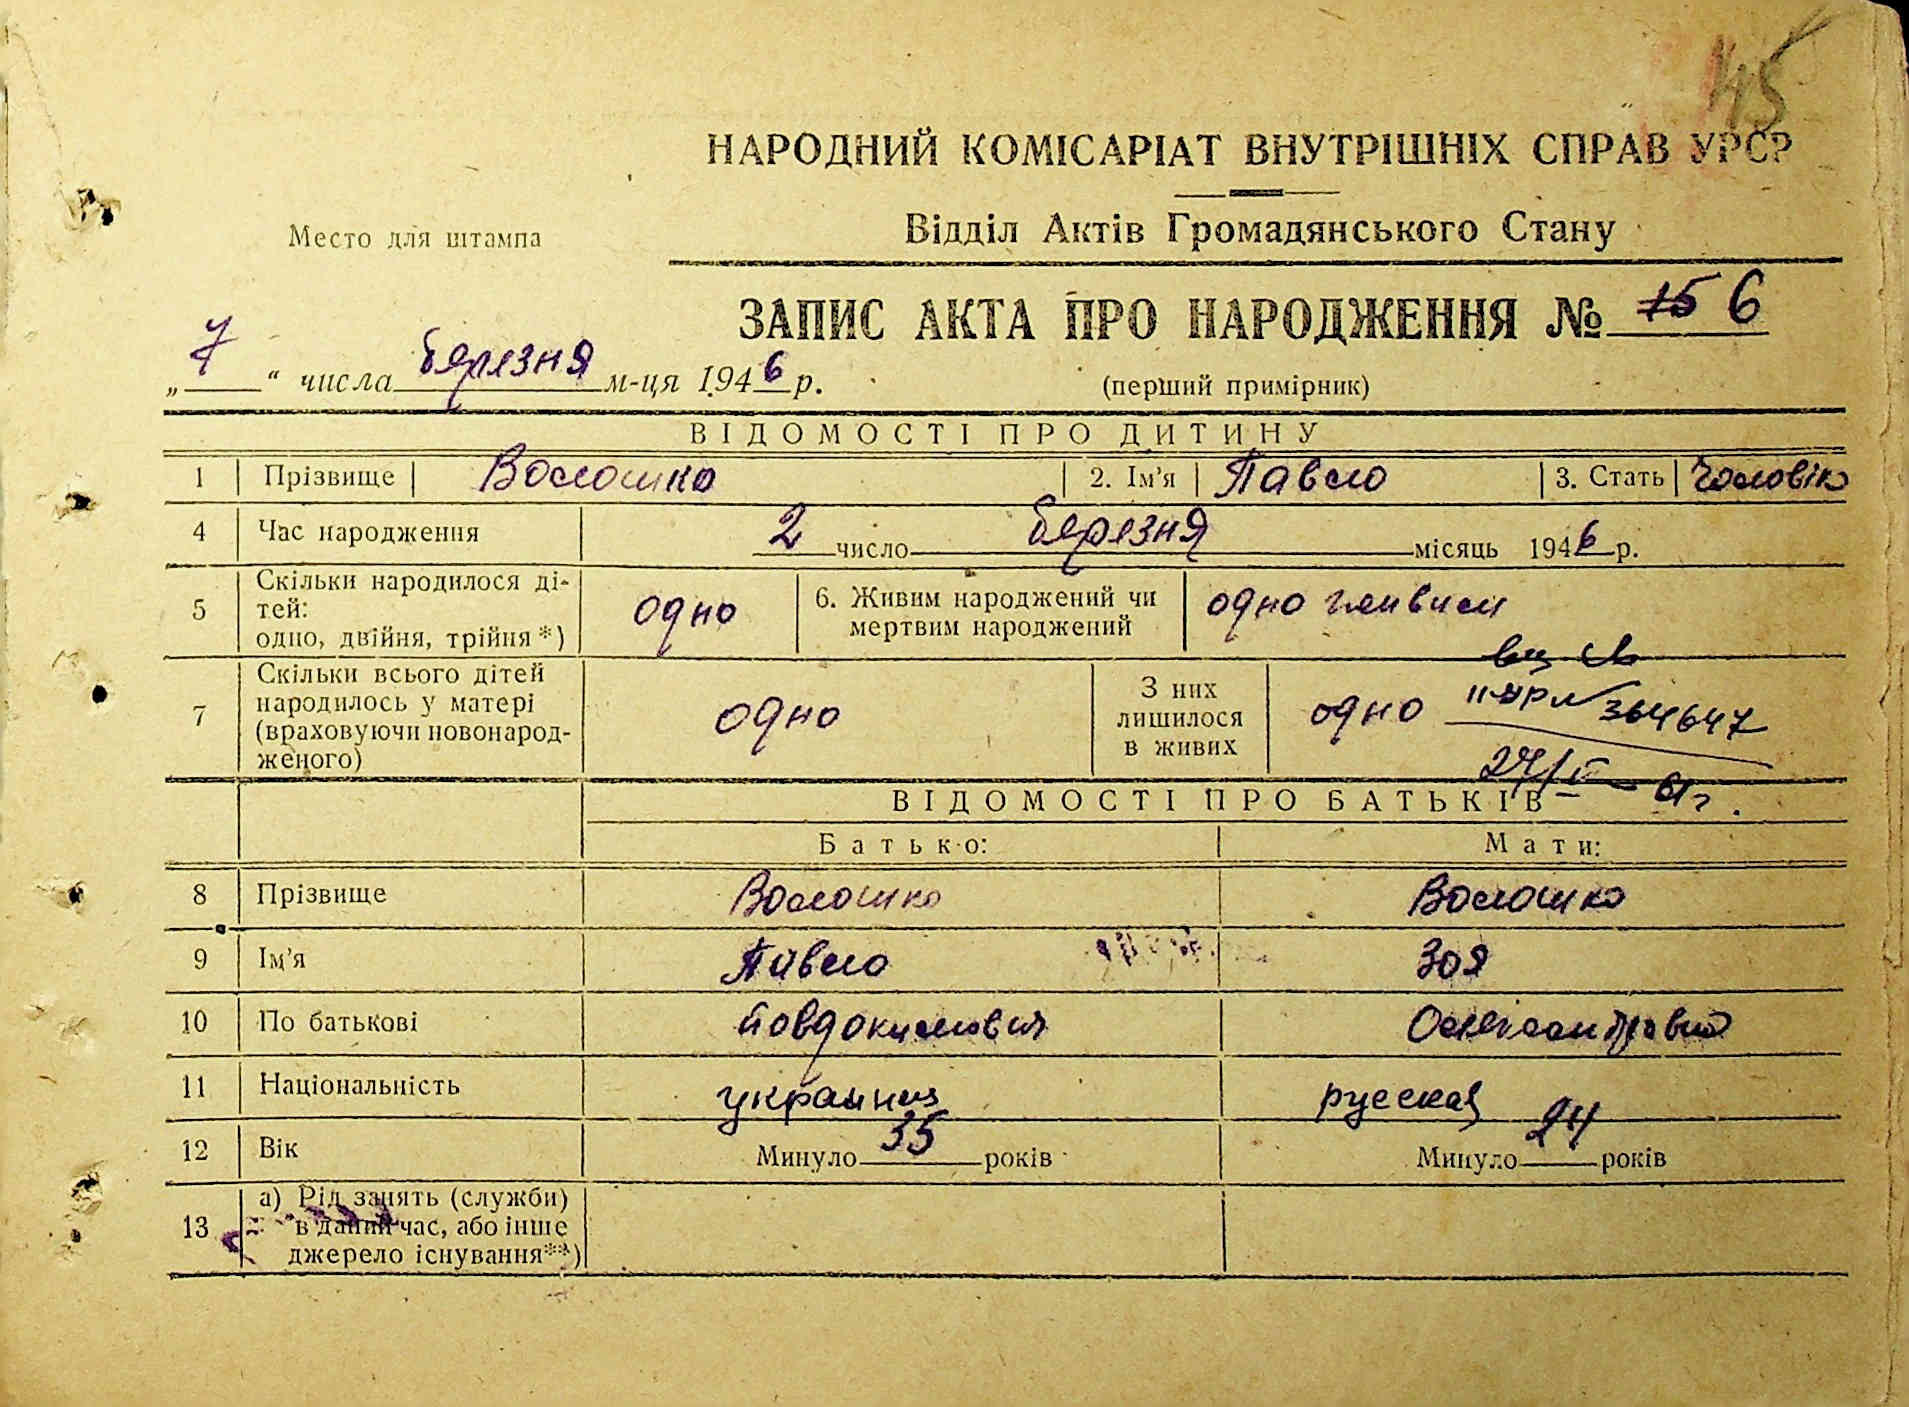 45
НАРОДНИЙ КОМІСАРІАТ ВНУТРІШНІХ СПРАВ УРСР
Место для штампа
Відділ Актів Громадянського Стану
ЗАПИС АКТА ПРО НАРОДЖЕННЯ № 15 6
„7“ числа березня м-ця 1946 р.
(перший примірник)
ВІДОМОСТІ ПРО ДИТИНУ
1 Прізвище Волошко 2. Ім'я Павло 3. Стать Чоловіко
4 Час народження 2 число березня місяць 1946 р.
5 Скільки народилося ді-
тей:
одно, двійня, трійня *)
одно
6. Живим народжений чи
мертвим народжений
одно
7 Скільки всього дітей
народилось у матері
(враховуючи новонарод-
женого)
одно
З них
лишилося
в живих
одно
364647
ВІДОМОСТІ ПРО БАТЬКІВ
Батько: Мати:
8 Прізвище Волошко Волошко
9 Ім'я Павло Зоя
10 По батькові Повдокимович Олександровна
11 Національність украинец русская
12 Вік Минуло 35 років Минуло 24 років
13 а) Рід занять (служби)
в даний час, або інше
джерело існування**)